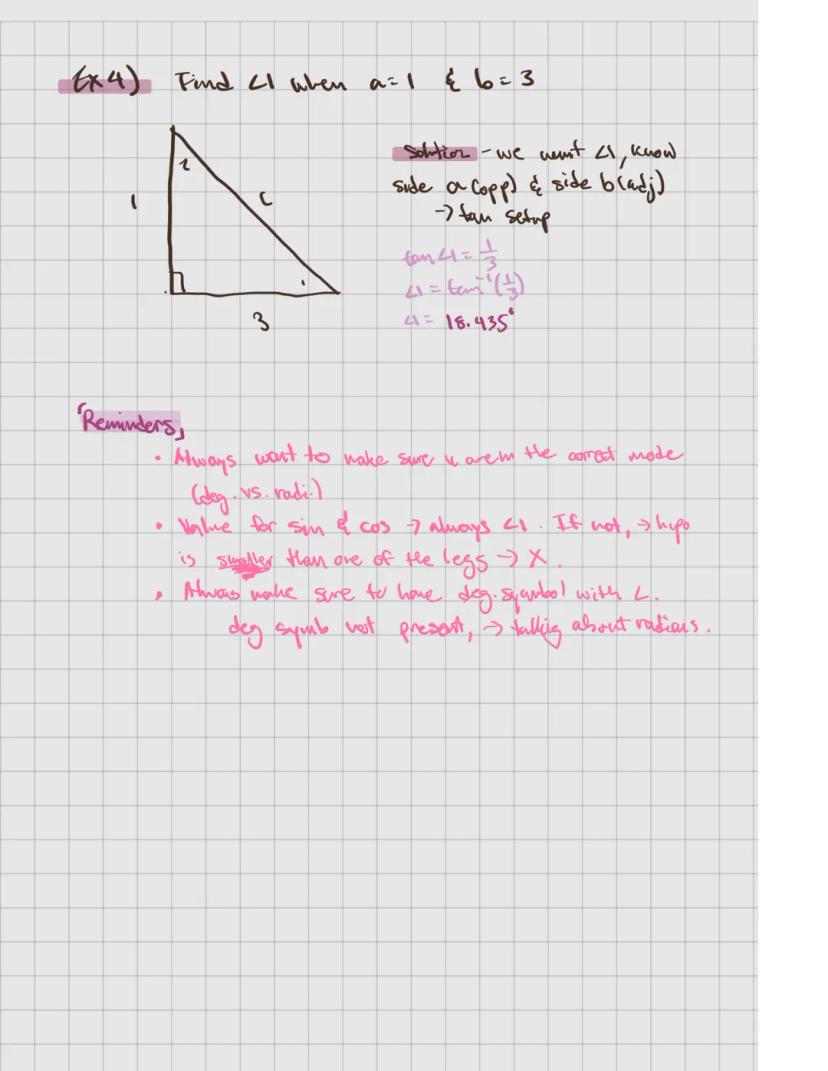 Ex 4) Find ∠1 when a=1 & b=3
Solution - we want ∠1, know
side a (opp) & side b (adj)
→ tan setup
2
1
c
tan∠1 = 1/3
∠1 = tan⁻¹(1/3)
1
∠1 = 18.435°
3
「Reminders」
• Always want to make sure u are in the correct mode
(deg. vs. radi.)
• Value for sin & cos → always ∠1. If not, → hypo
is smaller than one of the legs → X.
• Always make sure to have deg. symbol with ∠.
deg symb not present, → talking about radians.